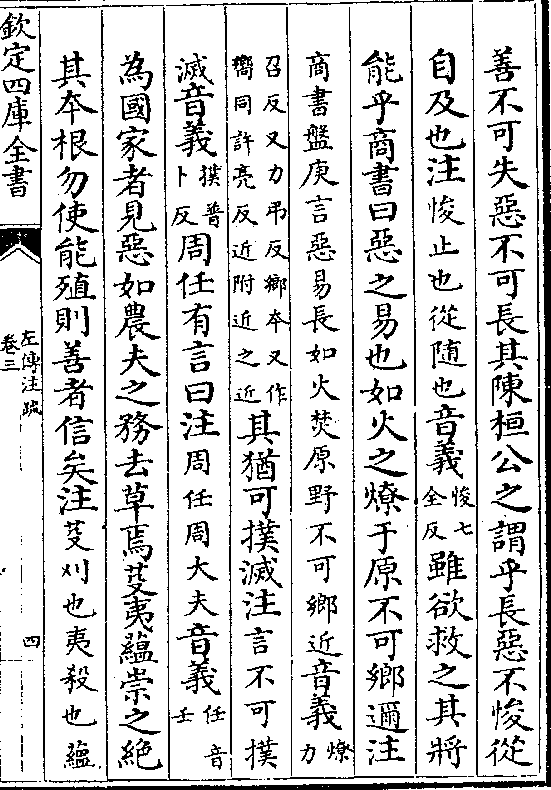 善不可失惡不可長其陳桓公之謂乎長惡不悛從
自及也注悛止也從随也音義悛七全反雖欲救之其將
能乎商書曰惡之易也如火之燎于原不可鄉邇注
商書盤庚言惡易長如火焚原野不可鄉近音義燎力
召反又力弔反鄉本又作嚮同許亮反近附近之近其猶可撲滅注言不可撲
滅音義撲普卜反周任有言曰注周任周大夫音義任音壬
為國家者見惡如農夫之務去草焉芟夷蘊崇之絶
其夲根勿使能殖則善者信矣注芟刈也夷殺也蘊
欽定四庫全書
左傳注疏
卷三
四